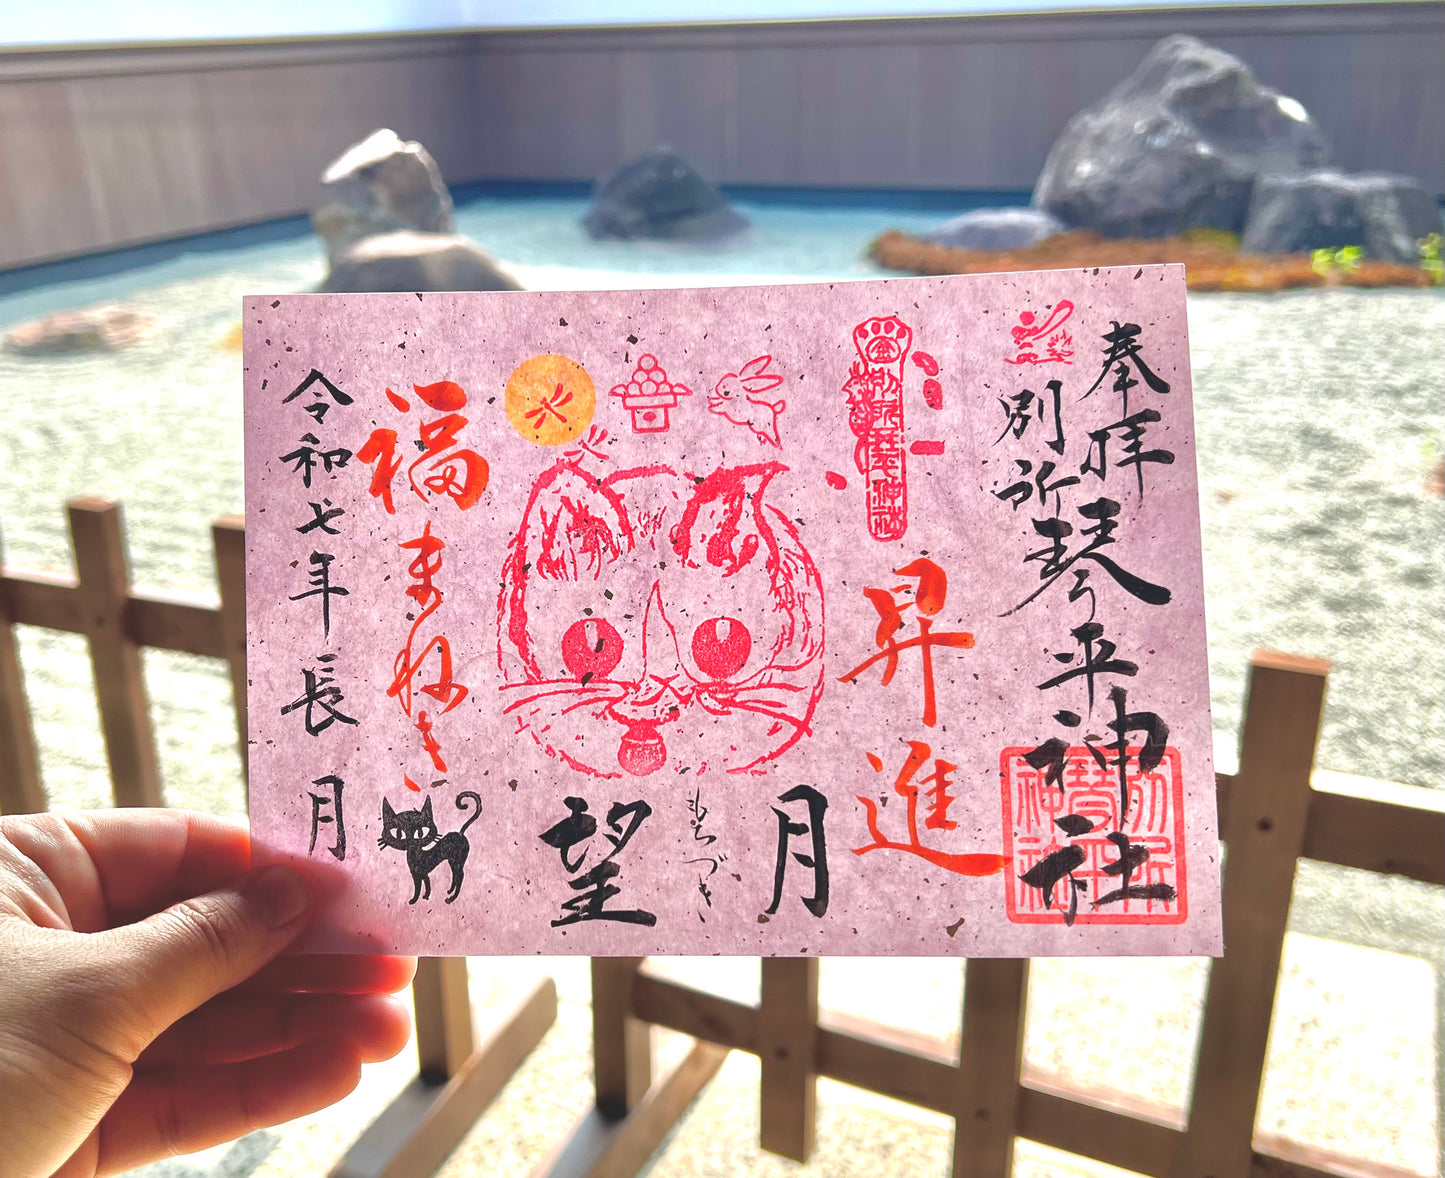 奉拝
別所
琴平神社
別所琴平神社
金
別所琴平神社
昇進
月
もちづき
望
福まねき
令和七年長月